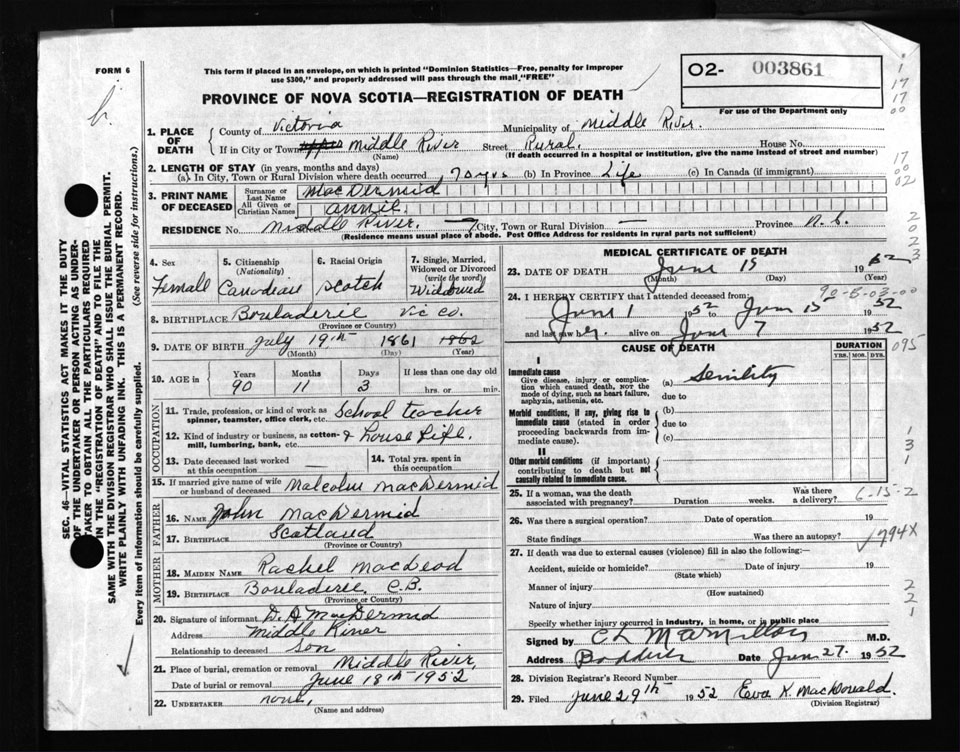 FORM 6
This form if placed in an envelope, on which is printed "Dominion Statistics—Free, penalty for improper
use $300," and properly addressed will pass through the mail "FREE"
O2- 003861
PROVINCE OF NOVA SCOTIA—REGISTRATION OF DEATH
For use of the Department only
1. PLACE OF DEATH
County of Victoria Municipality of Middle River.
If in City or Town Middle River Street Rural. House No.
(Name) (If death occurred in a hospital or institution, give the name instead of street and number)
2. LENGTH OF STAY (in years, months and days)
(a) In City, Town or Rural Division where death occurred 70 yrs (b) In Province Life (c) In Canada (if immigrant)
3. PRINT NAME OF DECEASED
Surname or Last Name MacDermid
All Given or Christian Names Annie.
RESIDENCE No. Middle River. City, Town or Rural Division — Province N.S.
(Residence means usual place of abode. Post Office Address for residents in rural parts not sufficient)
4. Sex
Female
5. Citizenship
(Nationality)
Canadean
6. Racial Origin
Scotch
7. Single, Married,
Widowed or Divorced
(write the word)
Widowed
8. BIRTHPLACE Bouladerie Vic Co.
(Province or Country)
9. DATE OF BIRTH July 19th 1861 1862
(Month) (Day) (Year)
10. AGE in
Years Months Days If less than one day old
90 11 3 hrs. or min.
OCCUPATION
11. Trade, profession, or kind of work as
spinner, teamster, office clerk, etc. School teacher
12. Kind of industry or business, as cotton-
mill, lumbering, bank, etc. & house
13. Date deceased last worked
at this occupation —
14. Total yrs. spent in
this occupation
15. If married give name of wife
or husband of deceased Malcolm MacDermid
FATHER
16. NAME John MacDermid
17. BIRTHPLACE Scotland
(Province or Country)
MOTHER
18. MAIDEN NAME Rachel MacLeod
19. BIRTHPLACE Bouladerie, C.B.
(Province or Country)
20. Signature of informant D. A MacDermid
Address Middle River
Relationship to deceased son
21. Place of burial, cremation or removal Middle River,
Date of burial or removal June 18th-1952
22. UNDERTAKER none,
(Name and address)
MEDICAL CERTIFICATE OF DEATH
23. DATE OF DEATH June 15 1952
(Month) (Day) (Year)
90-B-03-00
24. I HEREBY CERTIFY that I attended deceased from:
June 1 1952 to June 15 1952
and last saw her. alive on June 7 1952
CAUSE OF DEATH
DURATION
YRS. MOS. DYS.
095
I
Immediate cause
Give disease, injury or complica-
tion which caused death, NOT the
mode of dying, such as heart failure,
asphyxia, asthenia, etc.
(a) Senility
due to
Morbid conditions, if any, giving rise to
immediate cause (stated in order
proceeding backwards from im-
mediate cause).
(b)
due to
(c)
II
Other morbid conditions (if important)
contributing to death but not
causally related to immediate cause.
25. If a woman, was the death
associated with pregnancy? Duration weeks. Was there
a delivery?
6-15-2
26. Was there a surgical operation? Date of operation 19
State findings Was there an autopsy?
794X
27. If death was due to external causes (violence) fill in also the following:—
Accident, suicide or homicide? Date of injury 19
(State which)
Manner of injury
(How sustained)
Nature of injury
Specify whether injury occurred in industry, in home, or in public place
Signed by M.D.
Address Baddeck Date Jun 27. 1952
28. Division Registrar's Record Number
29. Filed June 29th 1952 Eva K. MacDonald.
(Division Registrar)
SEC. 46—VITAL STATISTICS ACT MAKES IT THE DUTY
OF THE UNDERTAKER OR PERSON ACTING AS UNDER-
TAKER TO OBTAIN ALL THE PARTICULARS REQUIRED
IN THE "REGISTRATION OF DEATH" AND TO FILE THE
SAME WITH THE DIVISION REGISTRAR WHO SHALL ISSUE THE BURIAL PERMIT.
WRITE PLAINLY WITH UNFADING INK. THIS IS A PERMANENT RECORD.
Every item of information should be carefully supplied. (See reverse side for instructions.)
1
17
17
00
17
00
02
2
0
2
3
1
3
1
2
2
1